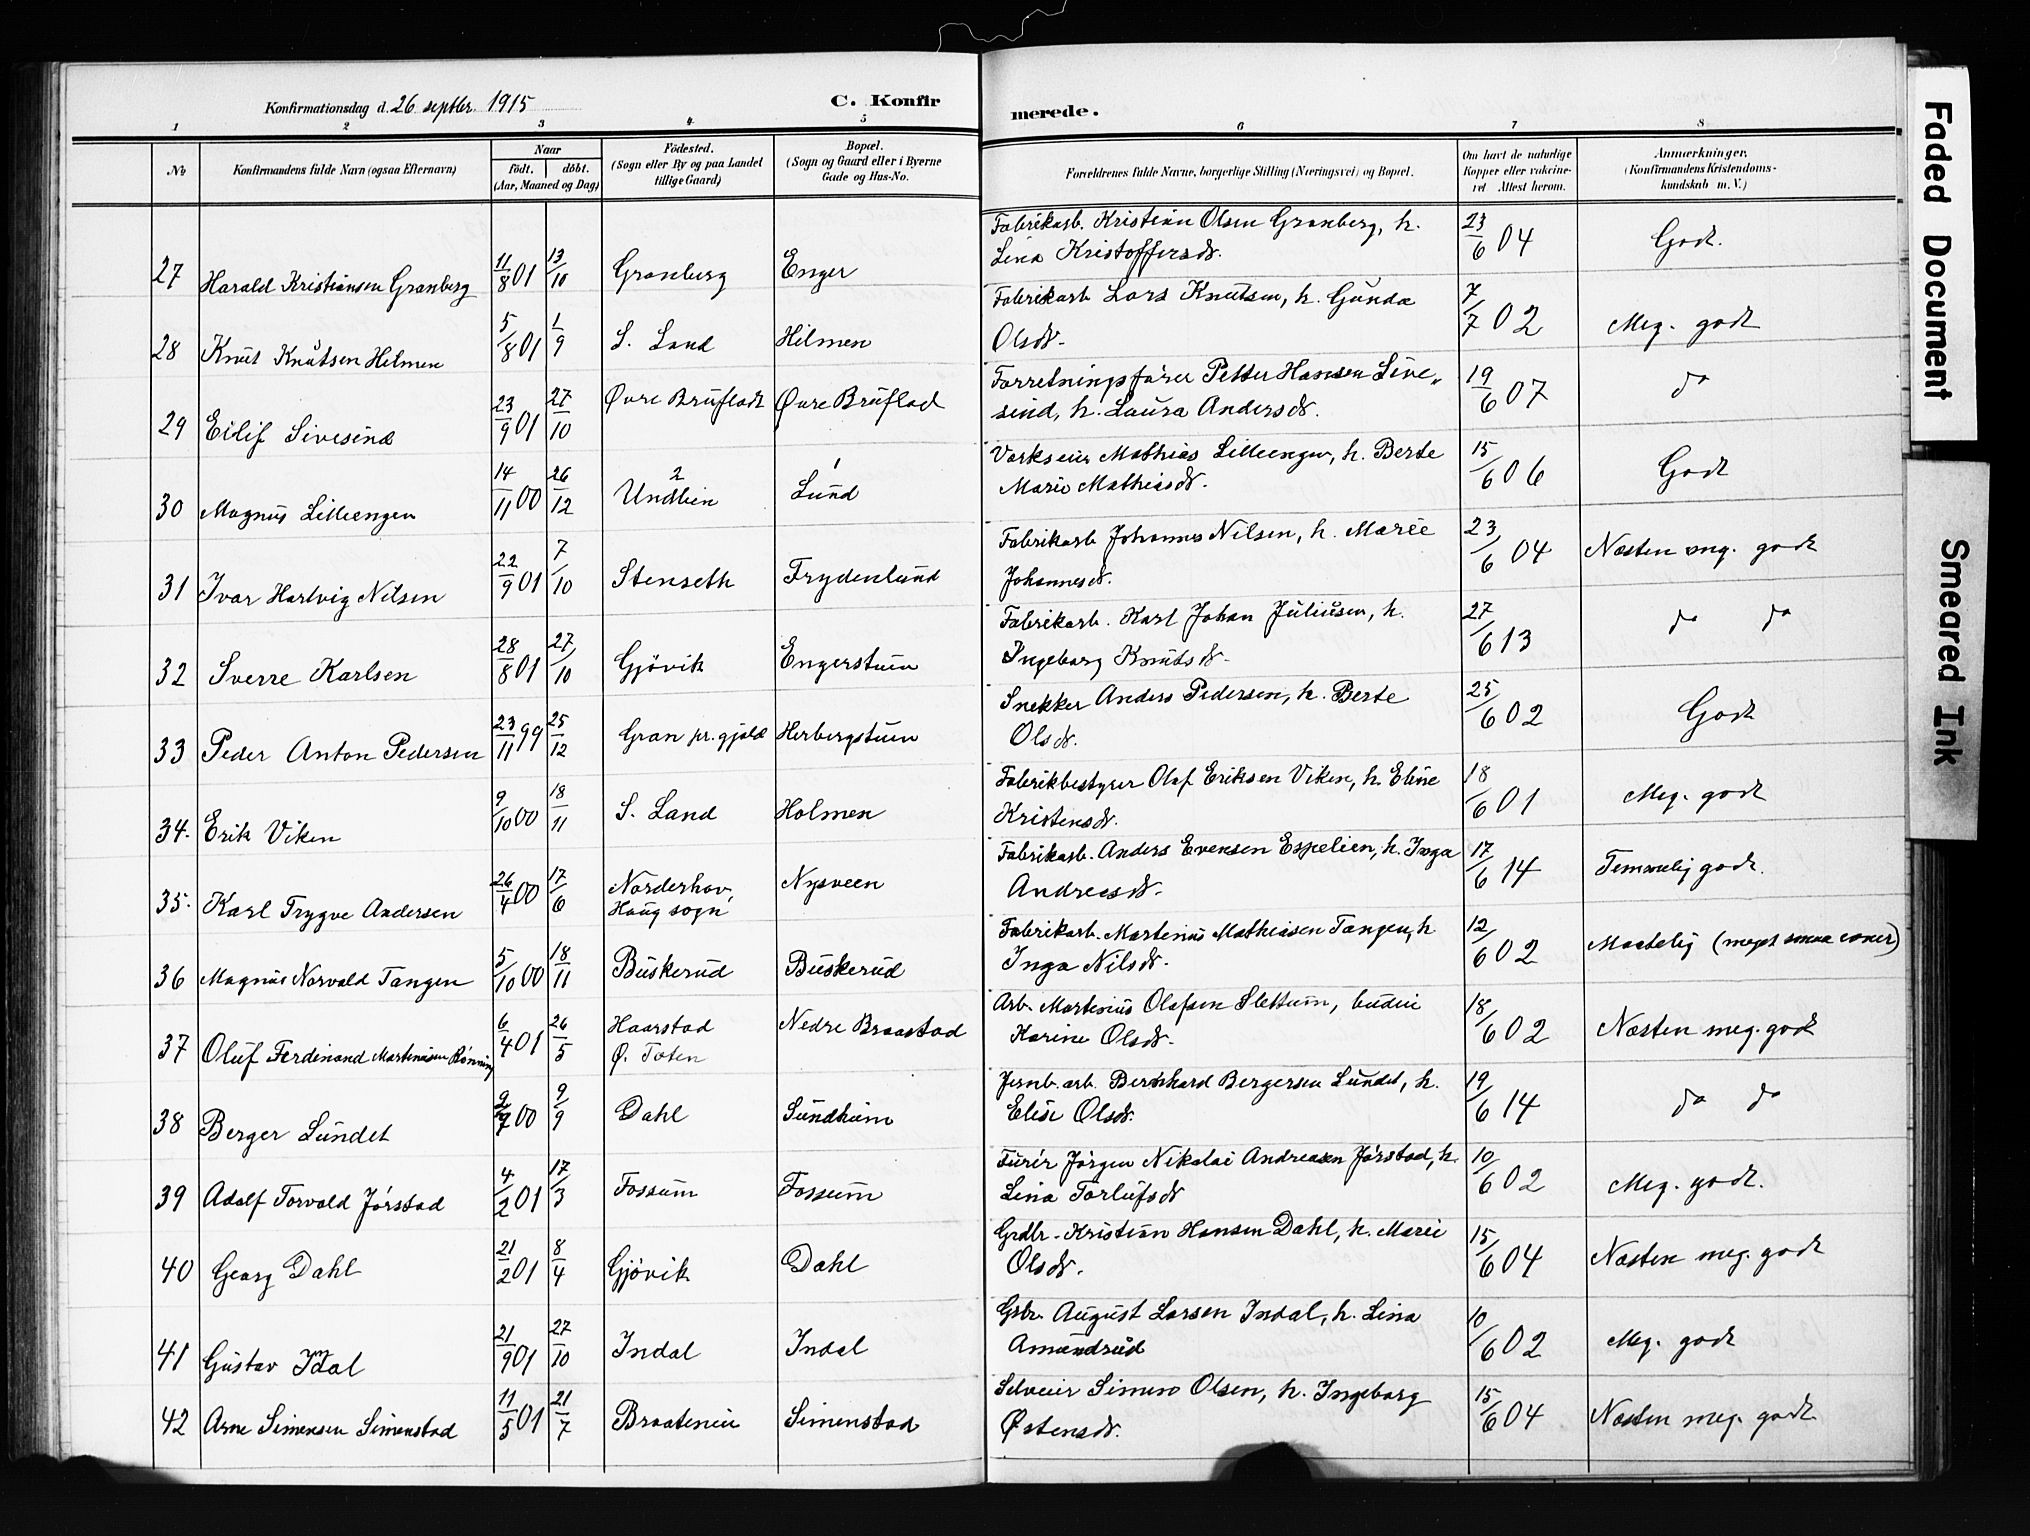 Konfirmationsdag d. 26 septbr. 1915
C. Konfirmerede.
1 2 3 4 5 6 7 8
No
Konfirmandens fulde Navn (ogsaa Efternavn)
Naar
födt. döbt.
(Aar, Maaned og Dag)
Födested.
(Sogn eller By og paa Landet
tillige Gaard)
Bopæl.
(Sogn og Gaard eller i Byerne
Gade og Hus-No.
Forældrenes fulde Navne, borgerlige Stilling (Næringsvei) og Bopæl.
Om havt de naturlige
Kopper eller vakcine-
ret Attest herom.
Anmærkninger.
(Konfirmandens Kristendoms-
kundskab m. V.)
27 Harald Kristiansen Granberg 11/8 01 13/10 Granberg Enger Fabrikarb. Kristian Olsen Granberg, h. 23/6 04 Godt.
Lina Kristoffersdr.
28 Knut Knutsen Hilmen 5/8 01 1/9 S. Land Hilmen Fabrikarb Lars Knutsen, h. Gunda 7/7 02 Meg. godt
Olsdr.
29 Eilif Sivesind 23/9 01 27/10 Øvre Bruflodt Øvre Bruflod Forretningsfører Petter Hansen Sive„ 19/6 07 do
sind, h. Laura Andersdr.
30 Magnus Lilleengen 14/11 00 26/12 Undlien 2 Lund 1 Verkseier Mathias Lilleengen, h. Berte 15/6 06 Godt
Marie Mathiasdr.
31 Ivar Hartvig Nilsen 22/9 01 7/10 Stenseth Frydenlund Fabrikarb Johannes Nilsen, h. Marie 23/6 04 Næsten meg. godt
Johannesdr.
32 Sverre Karlsen 28/8 01 27/10 Gjövik Engerstuen Fabrikarb. Karl Johan Juliusen, h. 27/6 13 do do
Ingeborg Knutsdr.
33 Peder Anton Pedersen 23/11 99 25/12 Gran pr.gjeld Herbergstuen Snekker Anders Pedersen, h. Berte 25/6 02 Godt
Olsdr.
34. Erik Viken 9/10 00 18/11 S. Land Holmen Fabrikbestyrer Olaf Eriksen Viken, h. Eline 18/6 01 Meg. godt
Kristensdr.
35. Karl Trygve Andersen 26/4 00 17/6 Norderhov Nysveen Fabrikarb. Anders Evensen Espelien, h. Inga 17/6 14 Temmelig godt.
Haug sogn Andreasdr.
36 Magnus Norvald Tangen 5/10 00 18/11 Buskerud Buskerud Fabrikarb. Martinus Mathiasen Tangen, h 12/6 02 Maadelig (meget smaa evner)
Inga Nilsdr.
37 Oluf Ferdinand Martinusen Rönning 6/4 01 26/5 Haarstad Nedre Braastad Arb. Martinius Olafsen Slettum, budeie 18/6 02 Næsten meg. godt
Ø. Toten Karine Olsdr.
38 Berger Lundet 9/7 00 9/9 Dahl Sundheim Jernb. arb. Bernhard Bergersen Lundet, h. 19/6 14 do do
Elise Olsdr.
39 Adolf Torvald Jörstad 4/2 01 17/3 Fossum Fossum Furér Jörgen Nikolai Andreasen Jörstad, h. 10/6 02 Meg. godt.
Lina Torlufsdr
40 Georg Dahl 21/2 01 8/4 Gjövik Dahl Grdbr. Kristian Hansen Dahl, h. Marie 15/6 04 Næsten meg. godt
Olsdr.
41 Gustav Indal 21/9 01 27/10 Indal Indal Gbr. August Larsen Indal, h. Lina 10/6 02 Meg. godt
Amundrud
42 Arne Simensen Simenstad 11/5 01 21/7 Braateneie Simenstad Selveier Simen Olsen, h. Ingeborg 15/6 04 Næsten meg. godt
Østensdr.
Faded Document
Smeared Ink